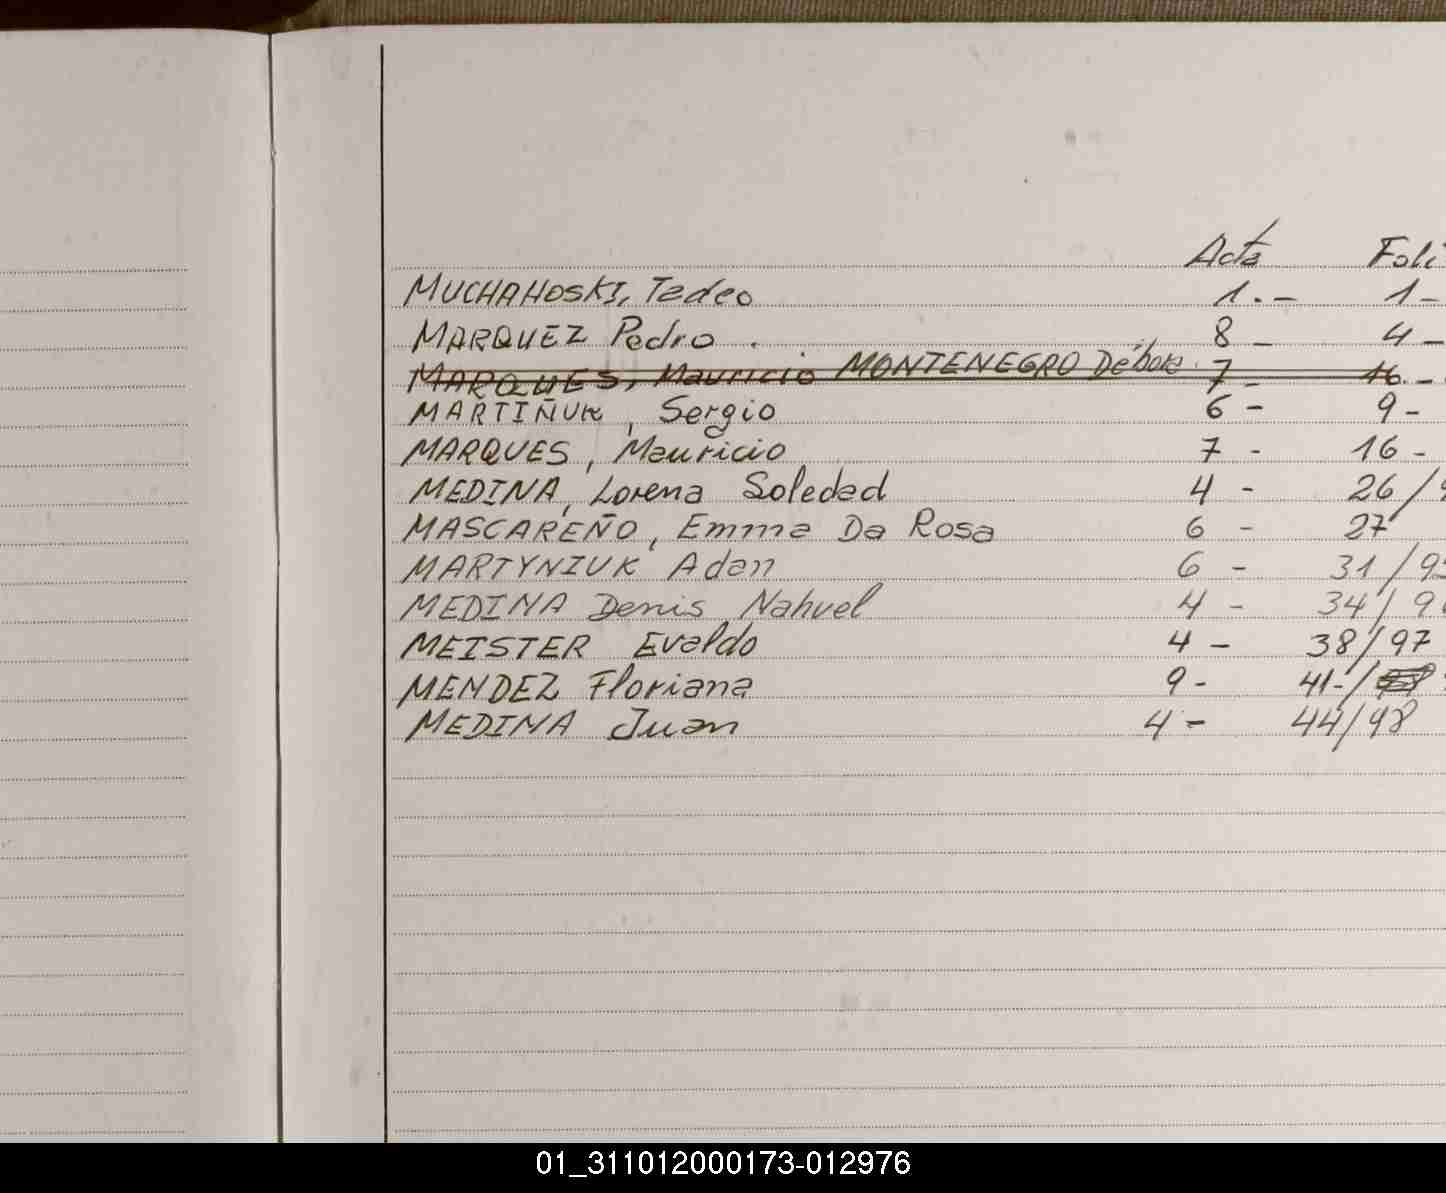 Acta Foli
MUCHAHOSKI, Tedeo 1.- 1-
MARQUEZ Pedro . 8 - 4 -
MARQUES, Mauricio MONTENEGRO Débora 7 - 16.-
MARTIÑUK, Sergio 6 - 9 -
MARQUES, Mauricio 7 - 16 -
MEDINA, Lorena Soledad 4 - 26/
MASCAREÑO, Emma Da Rosa 6 - 27
MARTYNIUK Adan 6 - 31/9
MEDINA Denis Nahuel 4 - 34/9
MEISTER Evaldo 4 - 38/97
MENDEZ Floriana 9 - 41-/
MEDINA Juan 4 - 44/98
01_311012000173-012976